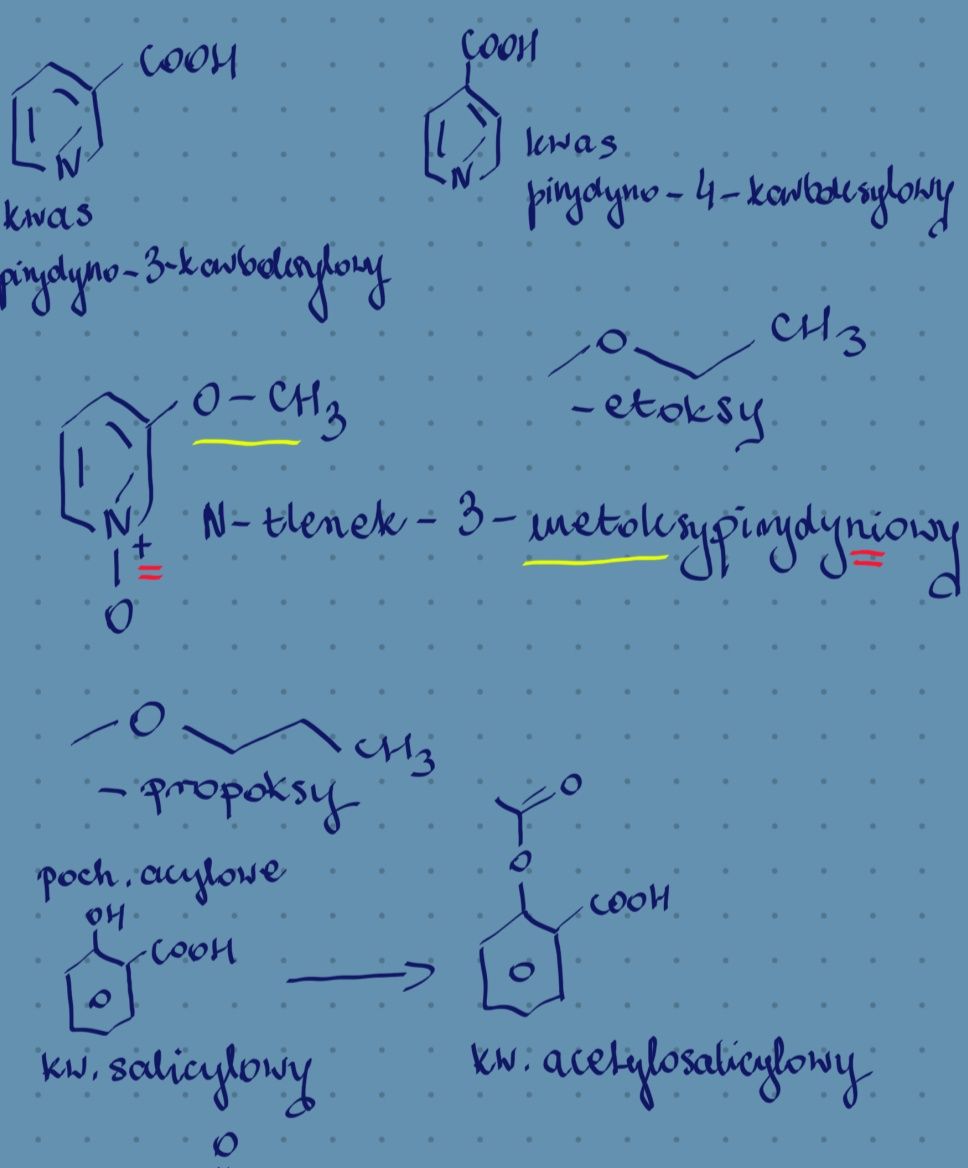 COOH
N
kwas
pirydyno-3-karboksylowy
COOH
N
kwas
pirydyno-4-karboksylowy
O
CH3
-etoksy
O-CH3
N+
O
N-tlenek-3-metoksypirydyniowy
O
CH3
-propoksy
poch. acylowe
OH
COOH
kw. salicylowy
O
O
COOH
kw. acetylosalicylowy
O